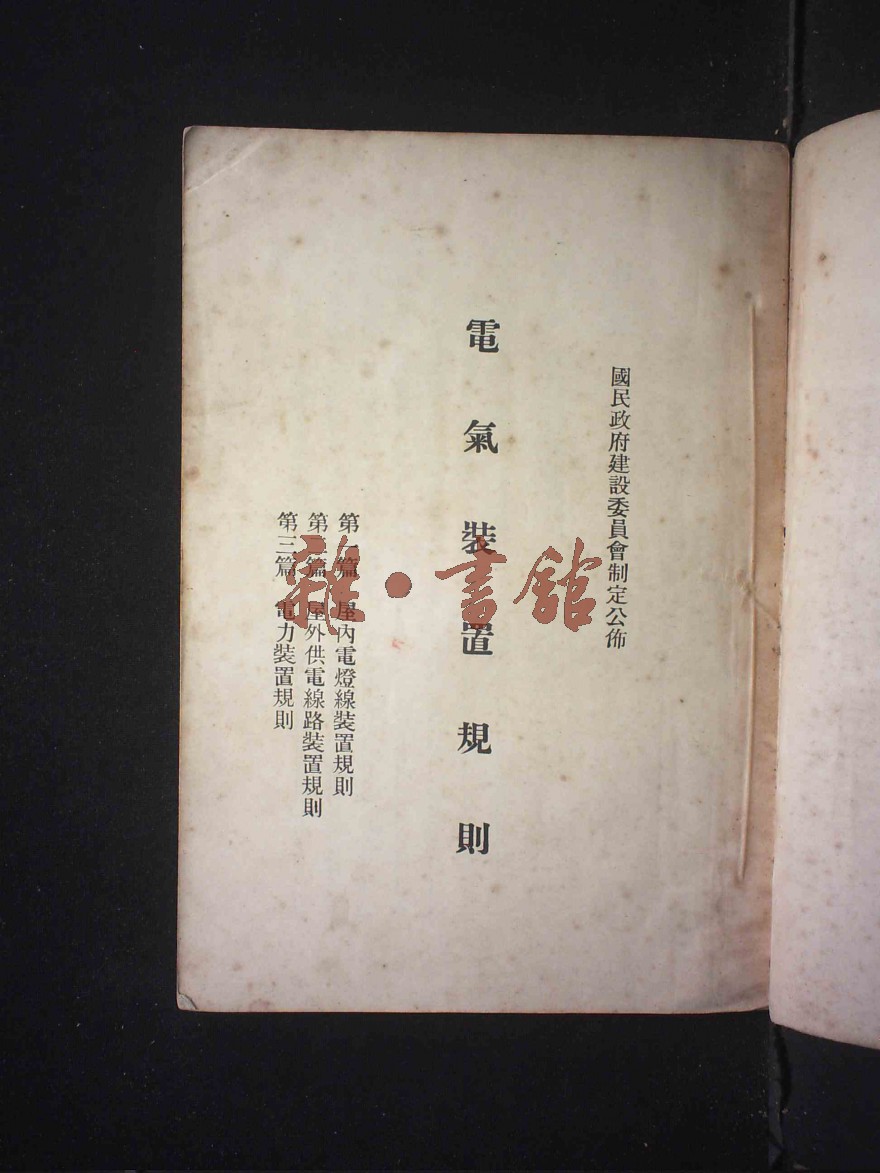 國民政府建設委員會制定公佈
電氣裝置規則
第一篇 屋內電燈線裝置規則
第二篇 屋外供電線路裝置規則
第三篇 電力裝置規則
雜·書館